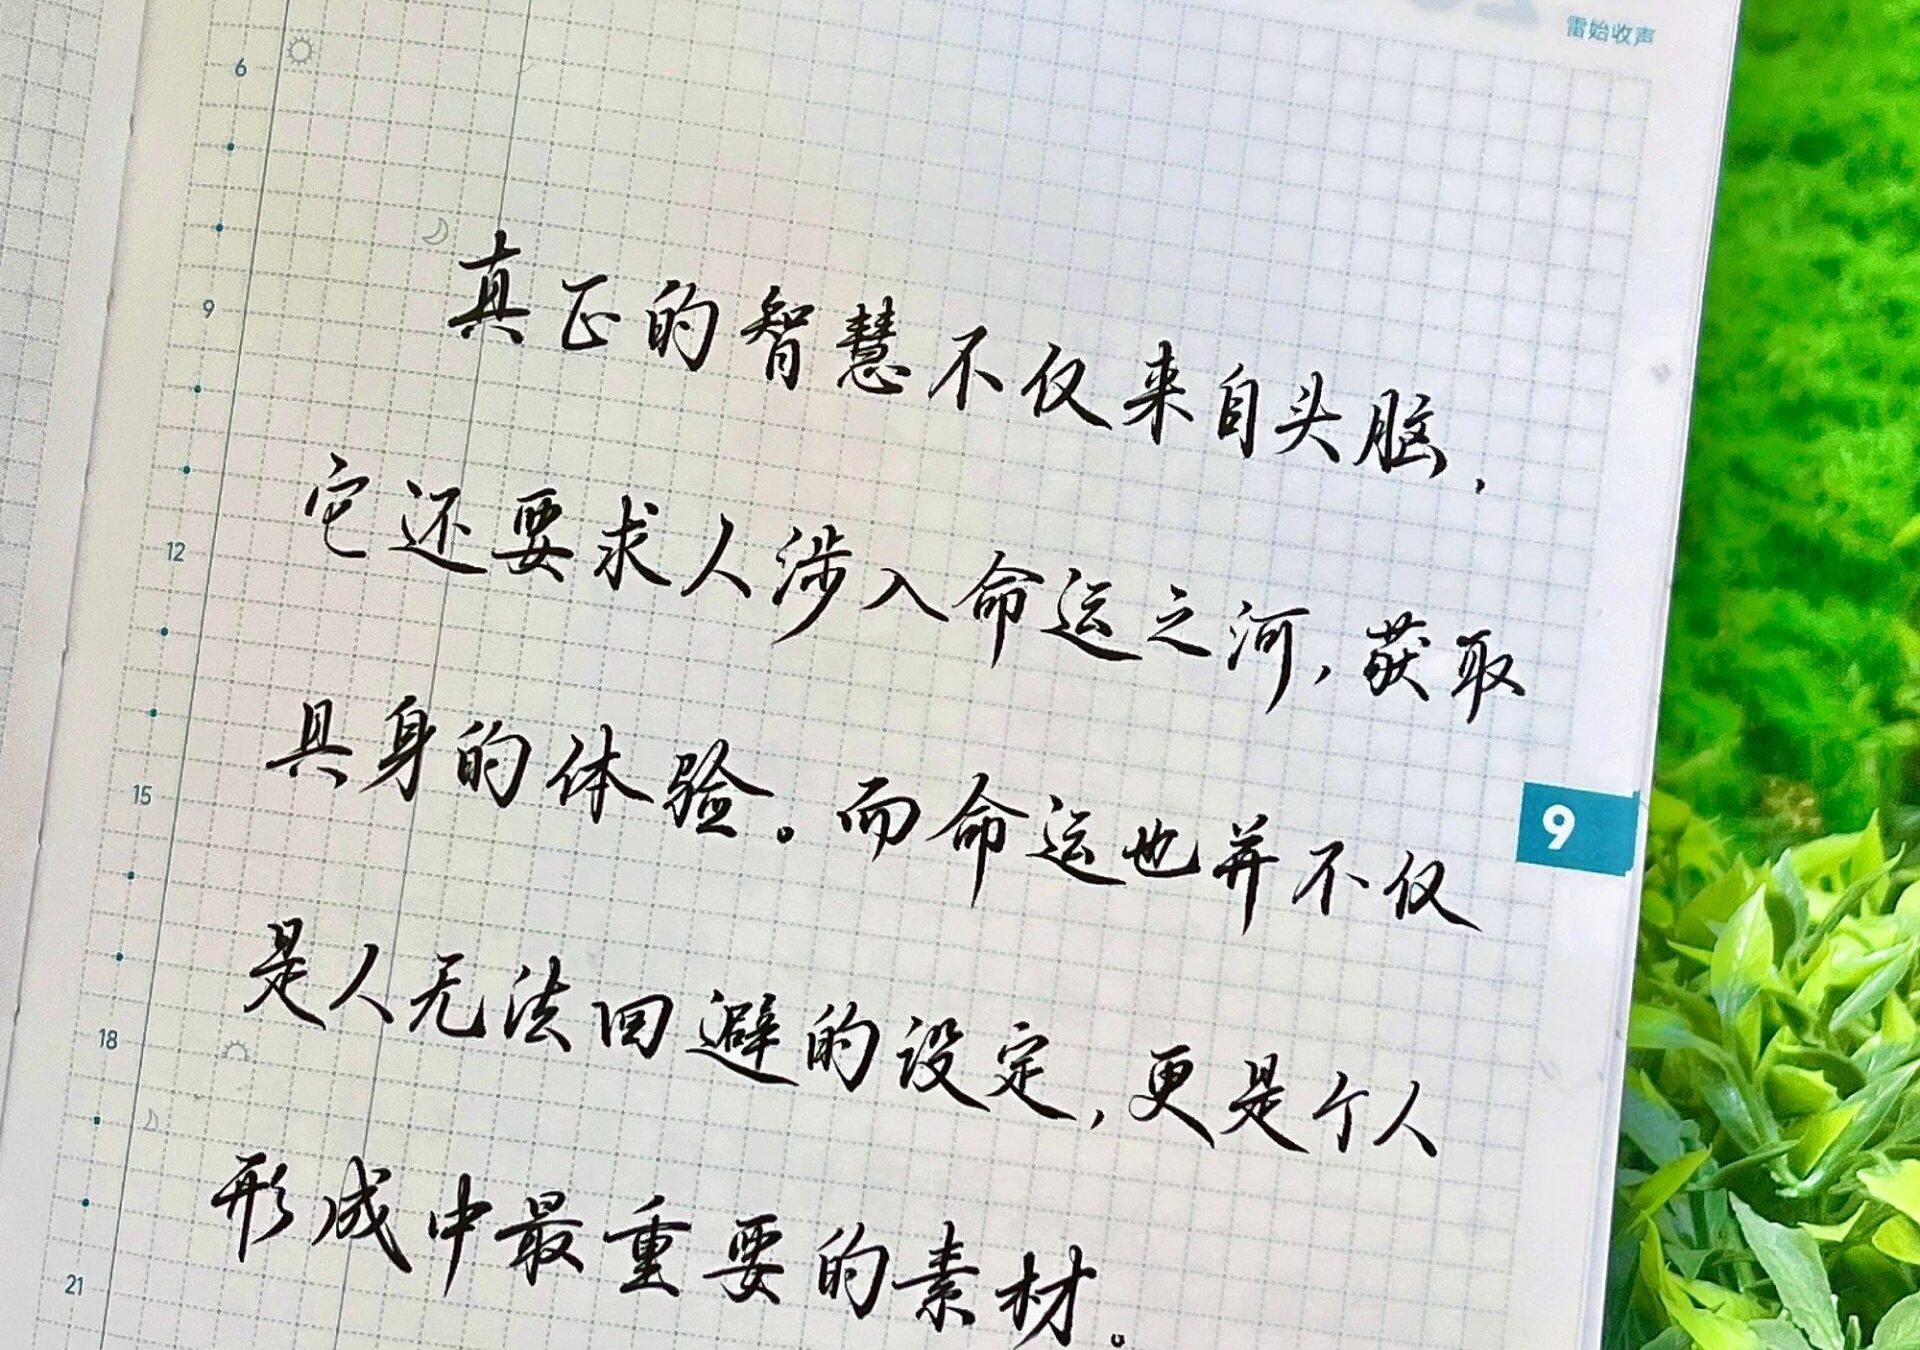 雷始收声
6
真正的智慧不仅来自头脑，
9
它还要求人涉入命运之河，获取
12
具身的体验。而命运也并不仅
15
9
是人无法回避的设定，更是个人
18
形成中最重要的素材。
21